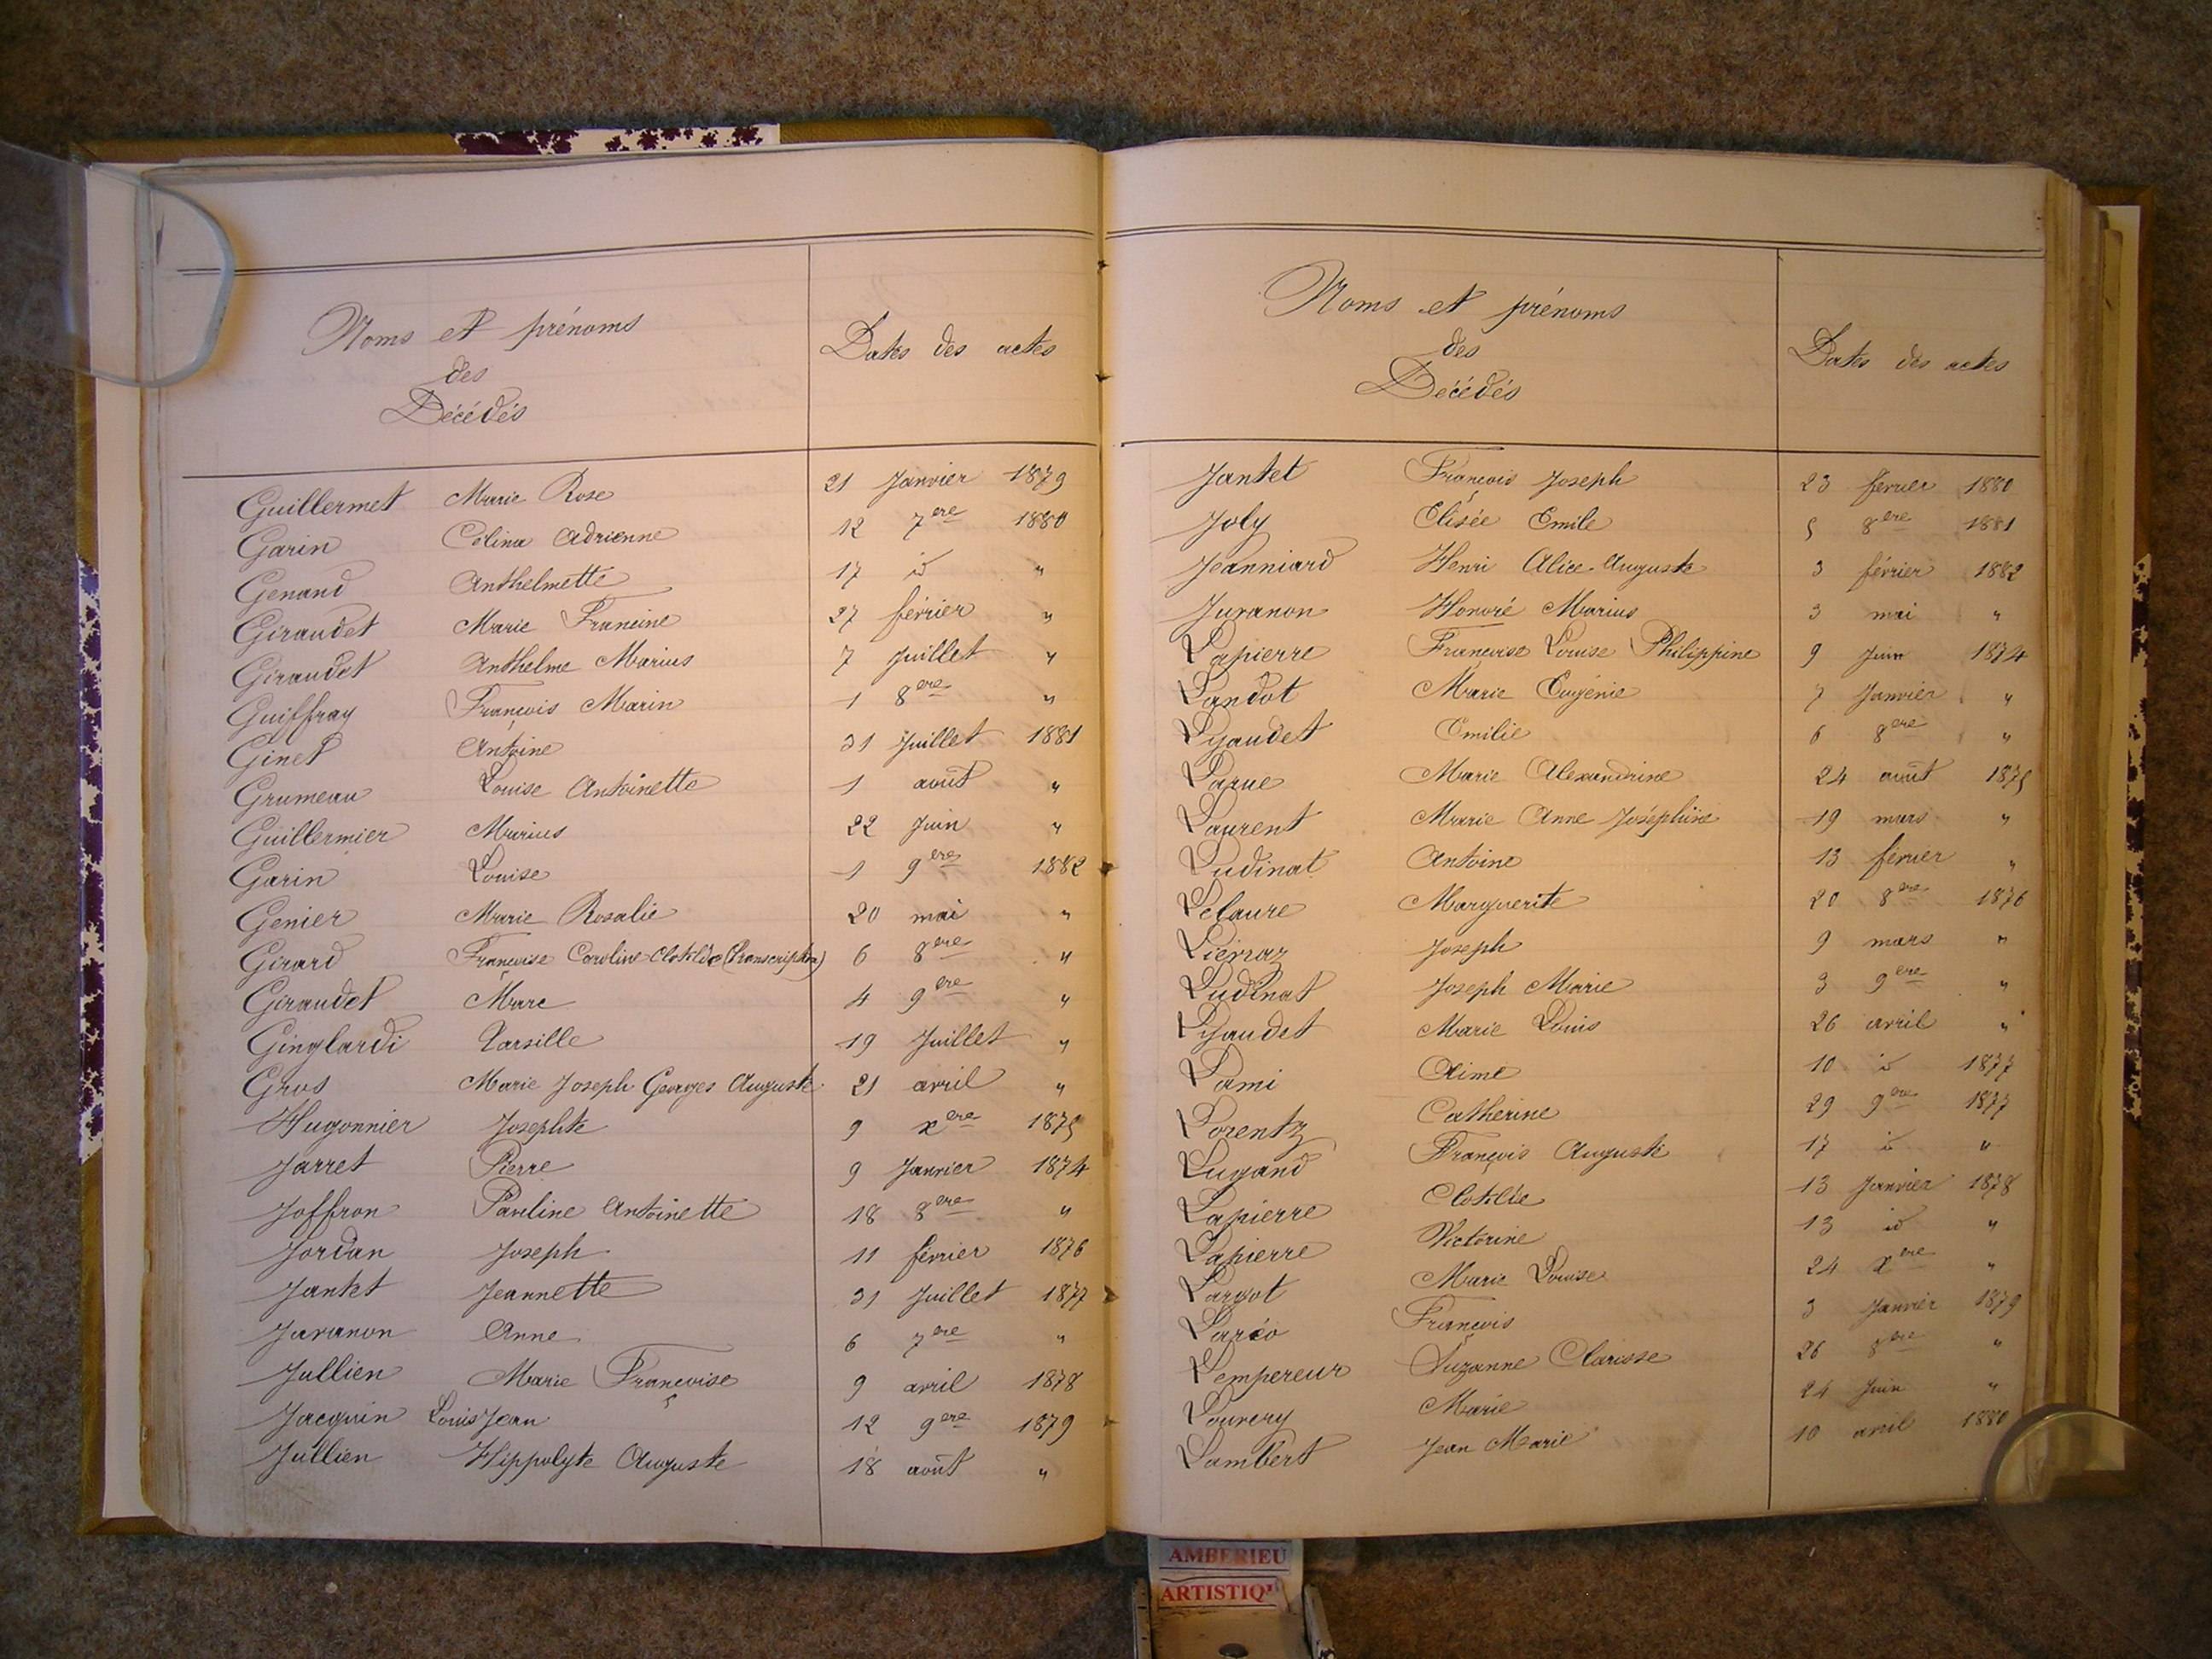 Noms et prénoms
des
Décédés
Dates des actes
Guillermet Marie Rose 21 Janvier 1879
Garin Célina Adrienne 12 7ere 1880
Genand Anthelmette 17 id "
Giraudet Marie Francine 27 février "
Giraudet Anthelme Marius 7 Juillet "
Guiffray François Marin 1 8ere "
Ginet Antoine 31 Juillet 1881
Grumeau Louise Antoinette 1 août "
Guillermier Marius 22 Juin "
Garin Louise 1 9ere 1882
Genier Marie Rosalie 20 mai "
Girard Françoise Caroline Clotilde (transcription) 6 8ere "
Giraudet Marc 4 9ere "
Ginglardi Tarsille 19 Juillet "
Gros Marie Joseph Georges Auguste 21 avril "
Hugonnier Josephte 9 xere 1875
Jarret Pierre 9 Janvier 1874
Joffron Pauline Antoinette 18 8ere "
Jordan Joseph 11 février 1876
Jantet Jeannette 31 Juillet 1877
Javanon Anne 6 7ere "
Jullien Marie Françoise 9 avril 1878
Jacquin Louis Jean 12 9ere 1879
Jullien Hippolyte Auguste 18 août "
Noms et prénoms
des
Décédés
Dates des actes
Jantet François Joseph 23 février 1880
Joly Elisée Emile 5 8ere 1881
Jeanniard Henri Alice Auguste 3 février 1882
Juranon Honoré Marius 3 mai "
Lapierre Françoise Louise Philippine 9 Juin 1874
Landot Marie Eugénie 7 Janvier "
Lyaudet Emilie 6 8ere "
Larue Marie Alexandrine 24 août 1875
Laurent Marie Anne Joséphine 19 mars "
Ludinat Antoine 13 février "
Lelaure Marguerite 20 8ere 1876
Lierraz Joseph 9 mars "
Ludinat Joseph Marie 3 9ere "
Lyaudet Marie Louis 26 avril "
Lami Aimé 10 id 1877
Lorentz Catherine 29 9ere 1877
Lugand François Auguste 17 id "
Lapierre Clotilde 13 Janvier 1878
Lapierre Victorine 13 id "
Largot Marie Louise 24 xere "
Larco François 3 Janvier 1879
Lempereur Suzanne Clarisse 26 8ere "
Louvery Marie 24 Juin "
Lambert Jean Marie 10 avril 1880
AMBERIEU
ARTISTIQ'